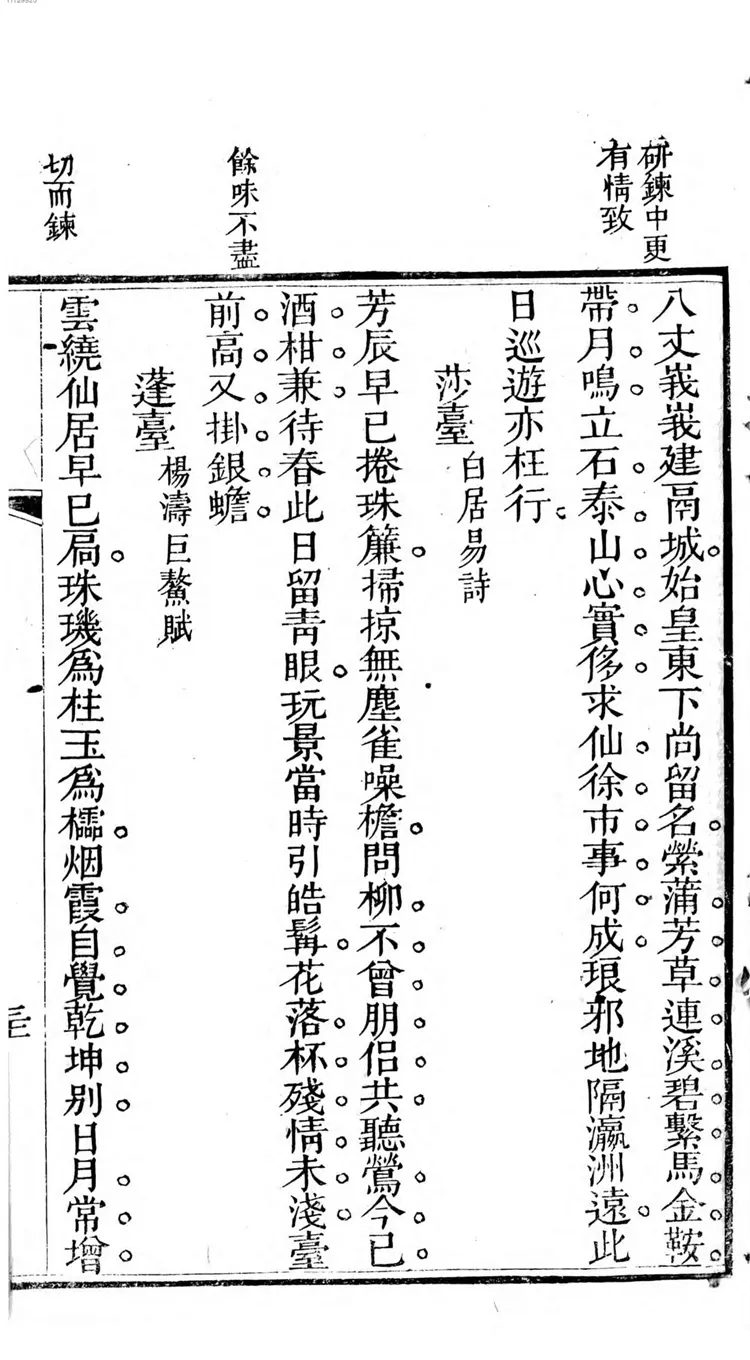 研鍊中更
有情致
餘味不盡
切而鍊
八丈峩峩建鬲城始皇東下尚留名縈蒲芳草連溪碧繫馬金鞍
帶月鳴立石泰山心實侈求仙徐市事何成琅邪地隔瀛洲遠此
日巡遊亦枉行
莎臺 白居易詩
芳辰早已捲珠簾掃掠無塵雀噪檐問柳不曾朋侶共聽鶯今已
酒柑兼待春此日留青眼玩景當時引皓髯花落杯殘情未淺臺
前高又掛銀蟾
蓬臺 楊濤巨鰲賦
雲繞仙居早已扃珠璣爲柱玉爲櫺烟霞自覺乾坤別日月常增